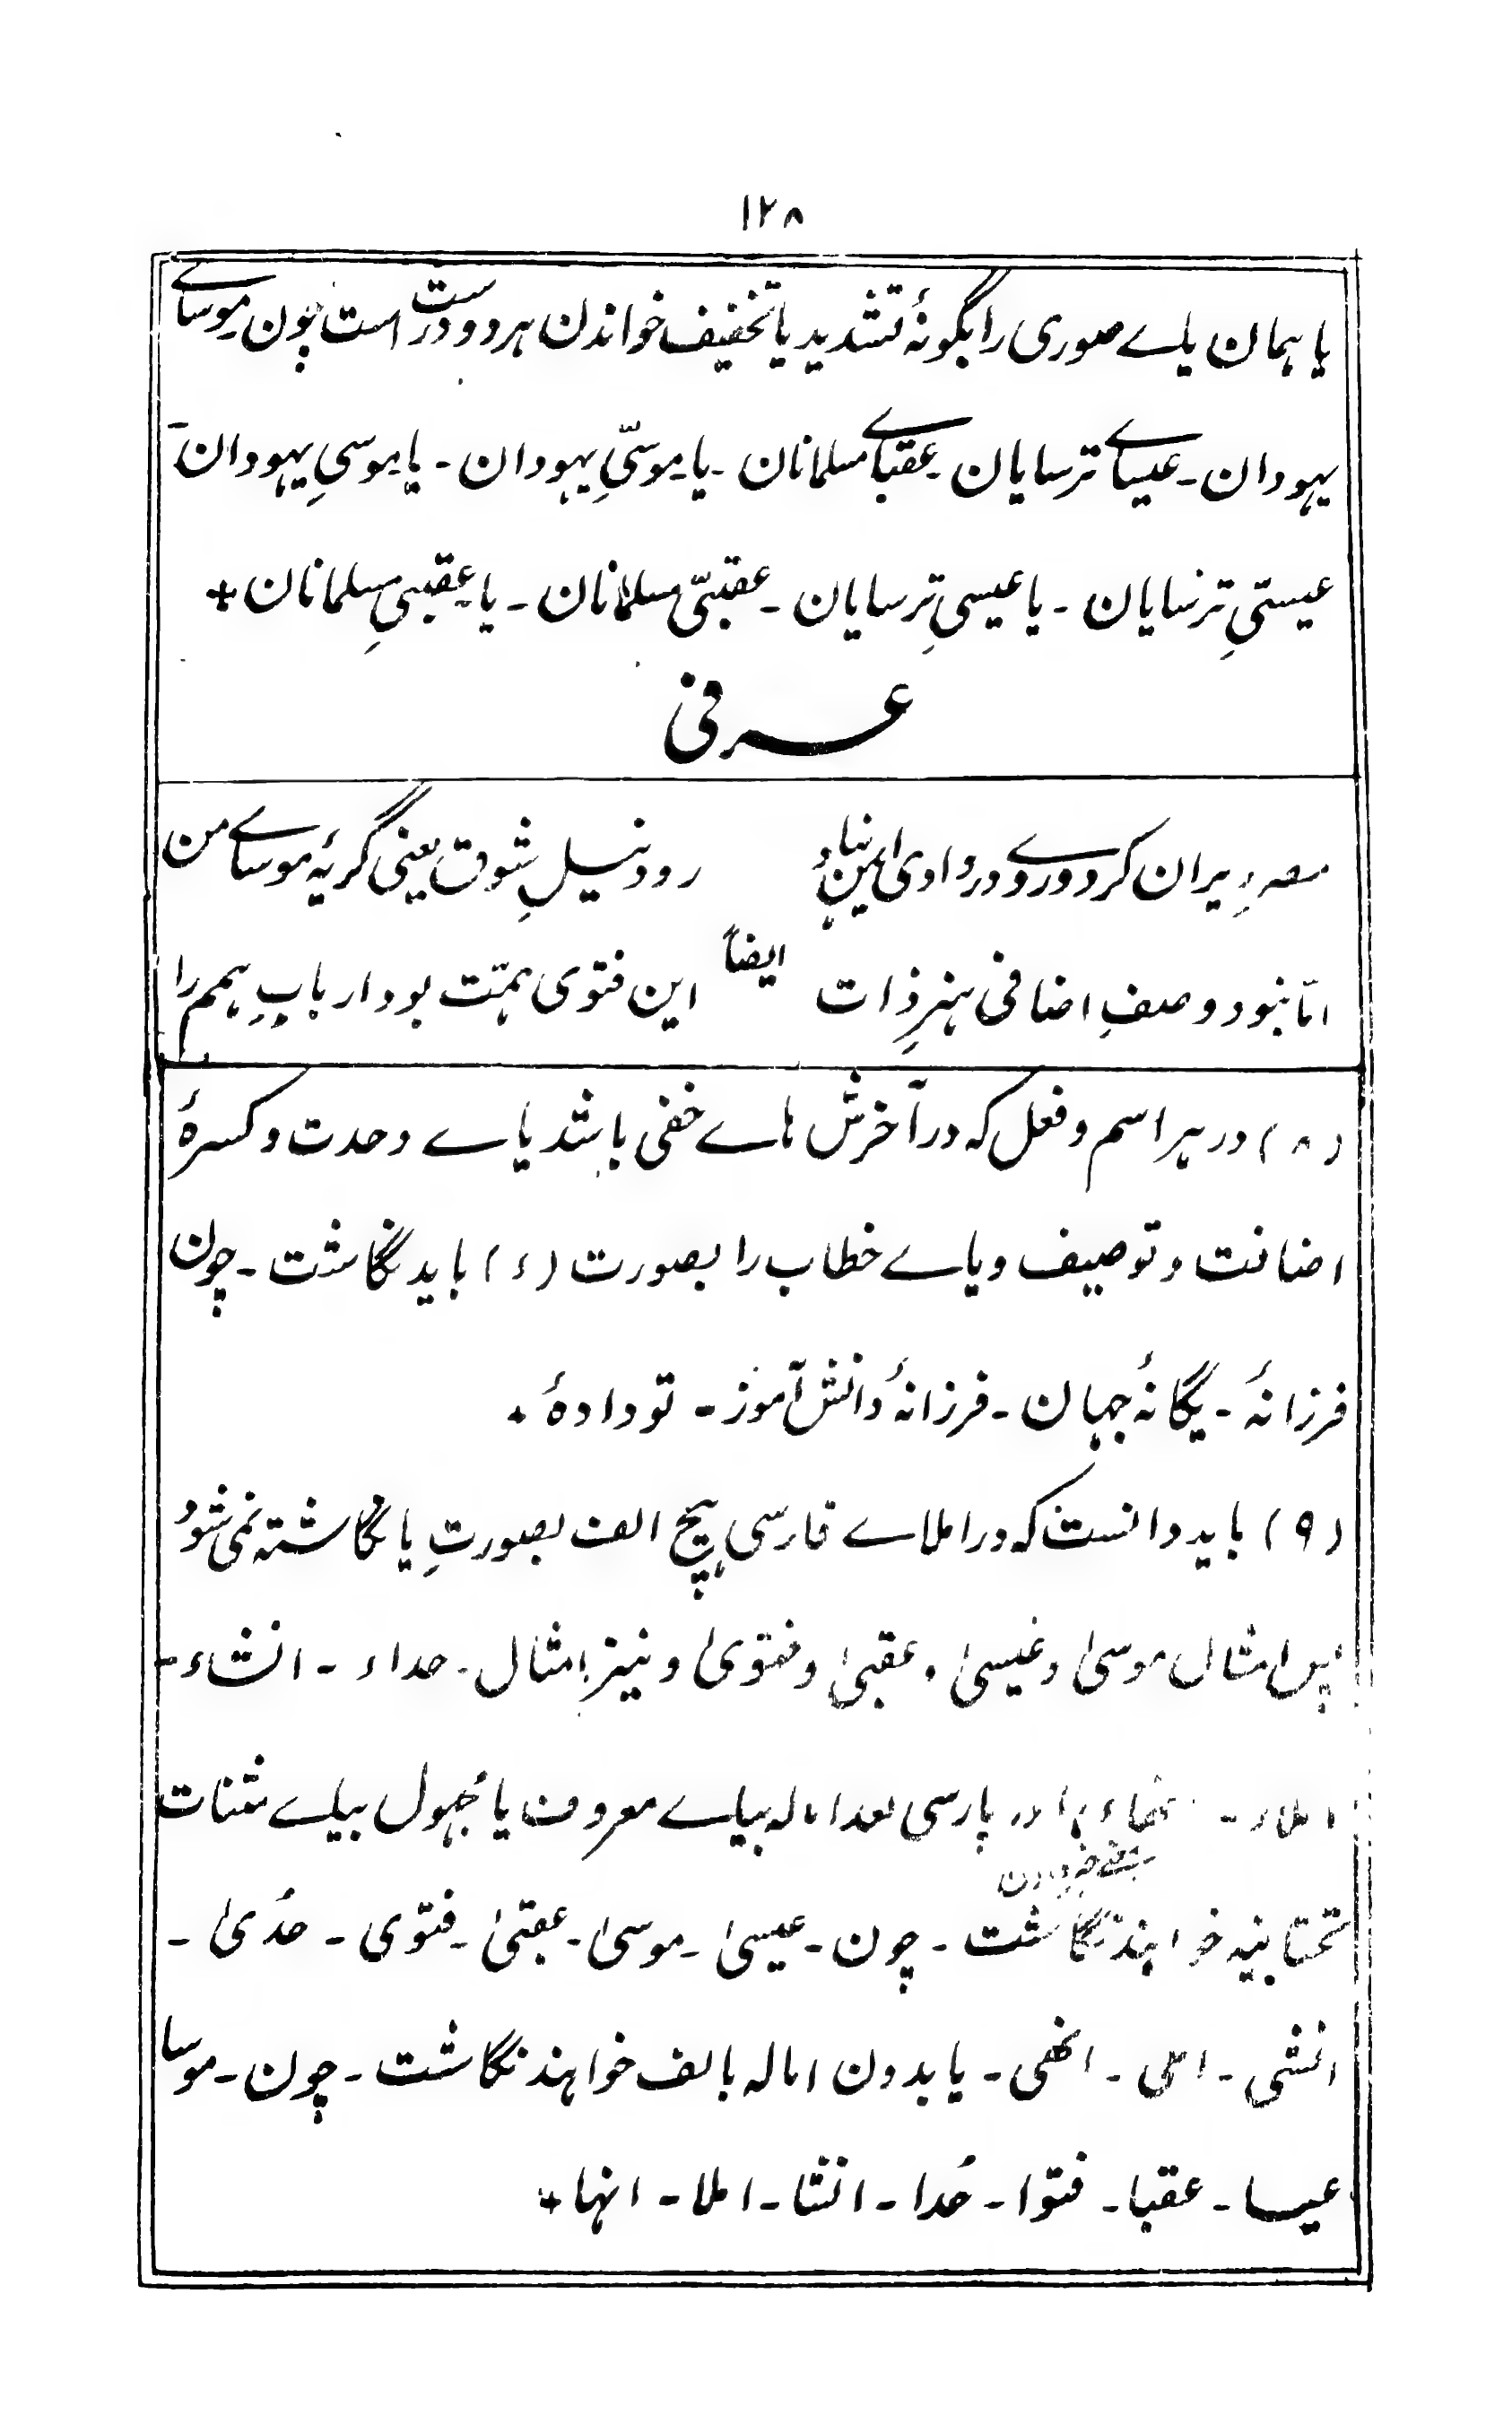 ۱۲۸
یا همان یاے صوری را بگونۂ تشدید یا تخفیف خواندن هر دو درست است چون موساے
یهودان ـ عیساے ترسایان ـ عقباے مسلمانان ـ یا موسیِّ یهودان ـ یا موسیِ یهودان ـ
عیسیِّ ترسایان ـ یا عیسیِ ترسایان ـ عقبیِّ مسلمانان ـ یا عقبیِ مسلمانان +
عرفی
مصرِ ویران کرد و رو در وادی ایمن نهاد رود نیلِ شوق یعنی گریۂ موساے من
ایضاً
امّا نبود وصفِ اضافی هنرِ ذات این فتوی همّت بود اربابِ همم را
(۸) در هر اسم و فعل که در آخرش هاے خفی باشد یاے وحدت و کسرۂ
اضافت و توصیف و یاے خطاب را بصورت (ء) باید نگاشت ـ چون
فرزانۂ ـ یگانۂ جهان ـ فرزانۂ دانش آموز ـ تو دادۂ +
(۹) باید دانست که در املاے فارسی هیچ الف بصورتِ یا نگاشته نمی شود
پس امثال موسیٰ و عیسیٰ و عقبیٰ و فتویٰ و نیز امثال ـ حداء ـ انشاء ـ
املاء ـ انهاء را در پارسی بعد اماله بیاے معروف یا مجهول بیاے مثنات
تحتانیه خواهند نگاشت ـ چون ـ عیسیٰ ـ موسیٰ ـ عقبیٰ ـ فتوی ـ حُدیٰ ـ
انشی ـ املی ـ انهی ـ یا بدون اماله بالف خواهند نگاشت ـ چون ـ موسا
عیسا ـ عقبا ـ فتوا ـ حُدا ـ انشا ـ املا ـ انها +